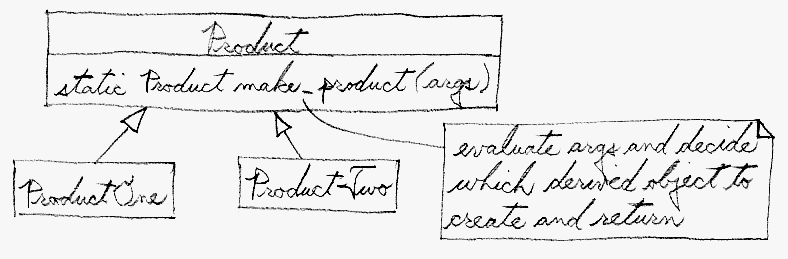 Product
static Product make_product(args)
ProductOne
ProductTwo
evaluate args and decide
which derived object to
create and return